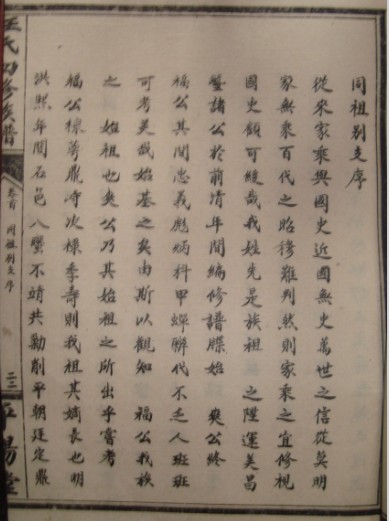 同祖别支序
從來家乘與國史近國無史萬世之信從莫明
家無乘百代之昭穆難列然則家乘之宜修視
國史顧可緩哉我姓先是族祖 之陞運美昌
鑒諸公於前清年間編修譜牒始 奭公終
福公其間忠義彪炳科甲蟬聯代不乏人班班
可考美哉始基之矣由斯以觀知 福公我族
之 始祖也奭公乃其始祖之所出乎嘗考
福公標萼鼎峙次祿季壽則我祖其嫡長也明
洪熙年間石邑八蠻不靖共勦削平朝廷定鼎
氏四修族譜
卷首 同祖别支序
陽堂